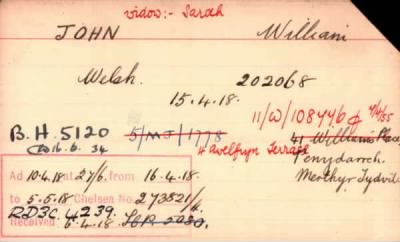 widow:- Sarah
JOHN William
Welsh. 202068
15.4.18.
11/W/108446 4/4/55
B.H. 5120 5/MJ/1778 41 William's Place
16.6.34 4 Avelfryn Terrace Penydarren.
Merthyr Tydvil
Ad 10.4.18 at 27/6, from 16.4.18.
to 5.5.18 Chelsea No. 273521/1.
RD3C. 4239.
Received 6.4.18